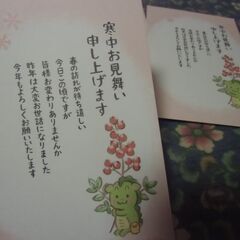 寒中お見舞い
申し上げます
春の訪れが待ち遠しい
今日この頃ですが
皆様お変わりありませんか
昨年は大変お世話になりました
今年もよろしくお願いいたします
寒中お見舞い
申し上げます